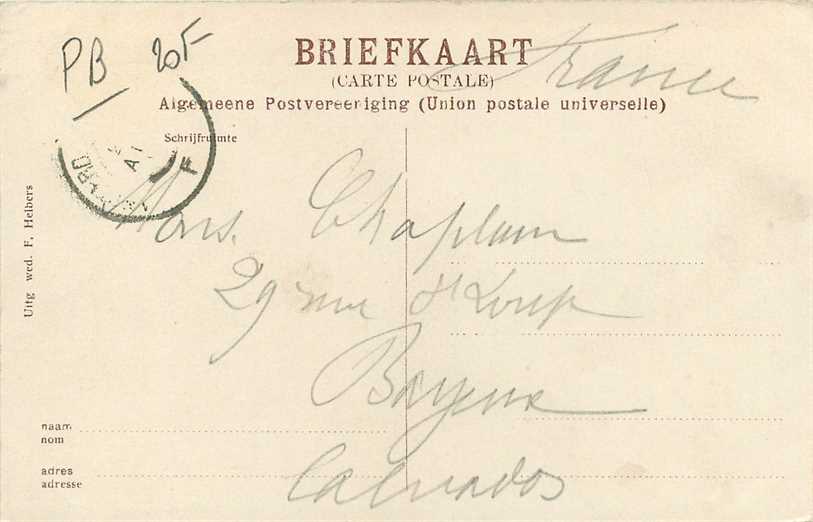 PB 20F-
BRIEFKAART
France
(CARTE POSTALE)
Algemeene Postvereeniging (Union postale universelle)
Schrijfruimte
F
Uitg wed. F. Helbers
Mons. Chaplain
29 rue St Loup
Bayeux
Calvados
naam
nom
adres
adresse